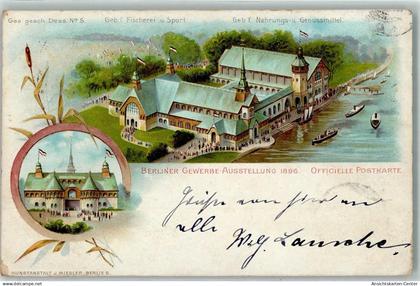 Ges. gesch. Dess. No 5.
Geb. f. Fischerei u. Sport.
Geb. f. Nahrungs- u. Genussmittel.
Berliner Gewerbe-Ausstellung 1896.
Officielle Postkarte
Grüße von
alle
Kunstanstalt J. Miesler, Berlin S.
Ansichtskarten-Center